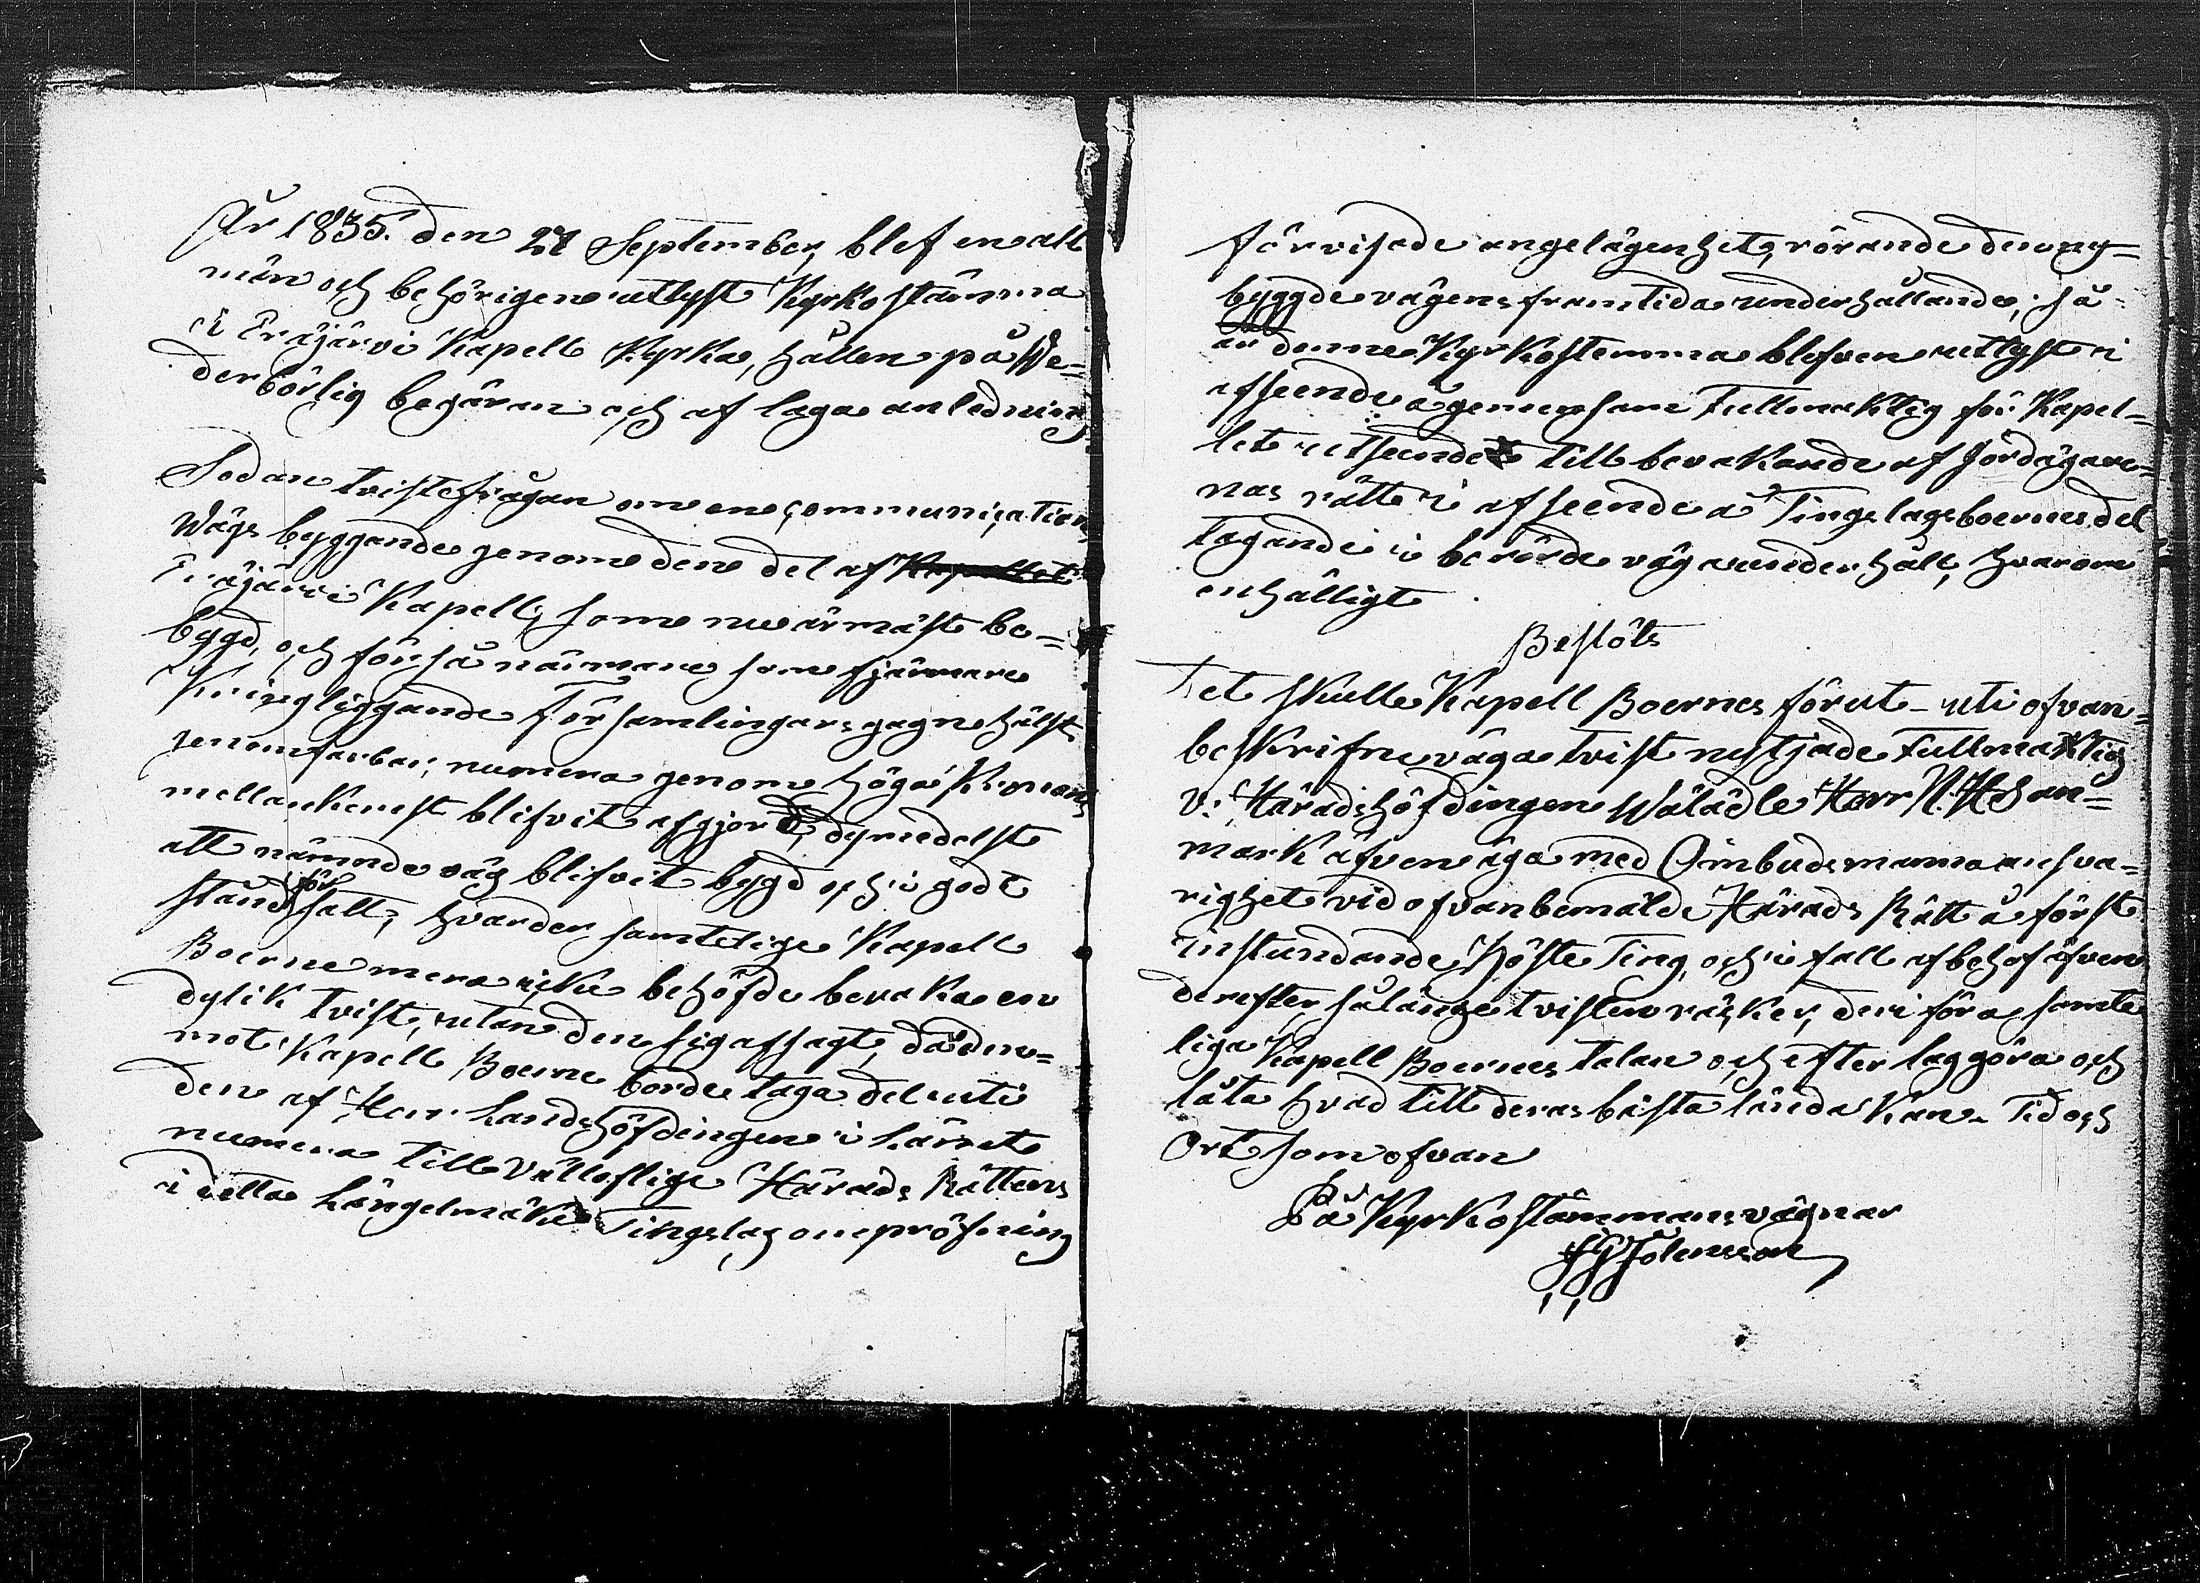 År 1835. den 27 September, blef en all
män och behörigen utlyst Kyrkostämma
i Eräjärvi Kapell Kyrka, hållen på we-
derbörlig begäran och af laga anledning
Sedan tvistefrågan om en communications
Wägs byggande genom den del af Kapellet
Eräjärvi Kapell, som nu är mäst be-
bygd, och för så närmare som fjärmare
Kringliggande Församlingars gagn hälst
genomfarbar, numera genom höga Kronans
mellankomst blifvit afgjord, dymedelst
att nämnde väg blifvit bygd och i godt
stånd för satt, hvarder samtelige Kapell
Boerne mera icke behöfde bevaka en
dylik tvist, utan den sig afsagt, då den-
mot Kapell Boerne borde taga del uti
den af Herr Landshöfdingen i Länet
numera till Vällofliga Härads Rättens
i detta Längelmäki Tingslag ompröfning
förvisade angelägenhet, rörande den ny-
byggde vägens framtida underhållande; så
är denne Kyrkostemma blefven utlyst i
afseende å gemensam Fullmäktig för Kapel-
let utseende till bevakande af Jordägare-
nas rätt i afseende å Tingslagsboernes del
tagande i berörde väg underhåll, hvarom
enhälligt
Beslöts
Det skulle Kapell Boernes förut uti ofvan-
beskrifne väga tvist nyttjade Fullmäktig
V. Häradshöfdingen Wälädle Herr N. H. San-
mark äfven äga med Ombudsmanna ansva-
righet vid ofvanbemälde Härads Rätt å först
instundande Höste Ting, och i fall af behof äfven
derefter, sålänge tvisten räcker, deri föra samte
liga Kapell Boernes talan och efter lag göra och
låta hvad till deras bästa lända kan. Tid och
Ort som ofvan
På Kyrkostämmans vägnar